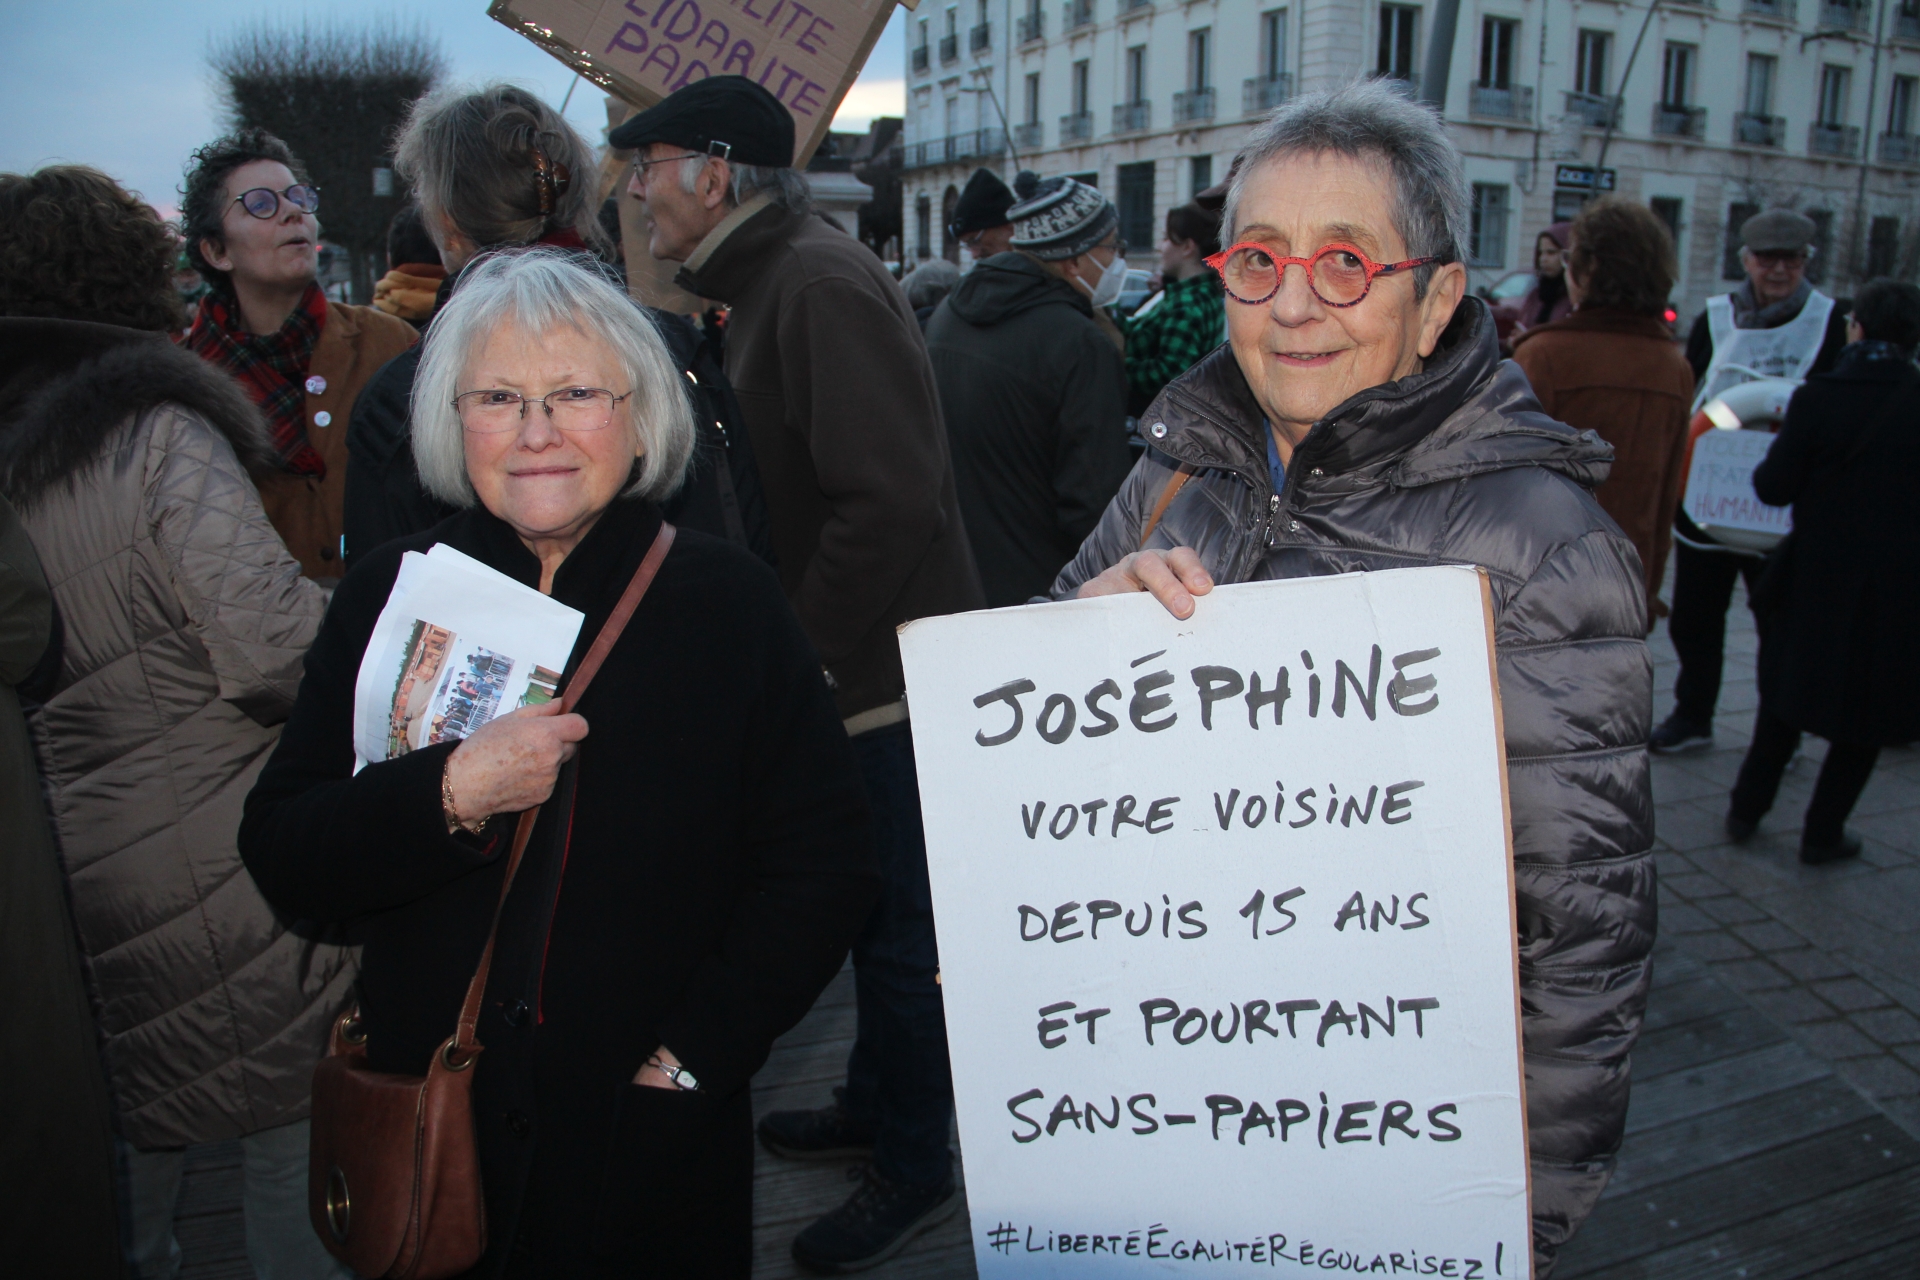 LIDARITE
JOSÉPHINE
VOTRE VOISINE
DEPUIS 15 ANS
ET POURTANT
SANS-PAPIERS
#LIBERTÉÉGALITÉRÉGULARISEZ!
HUMANITÉ